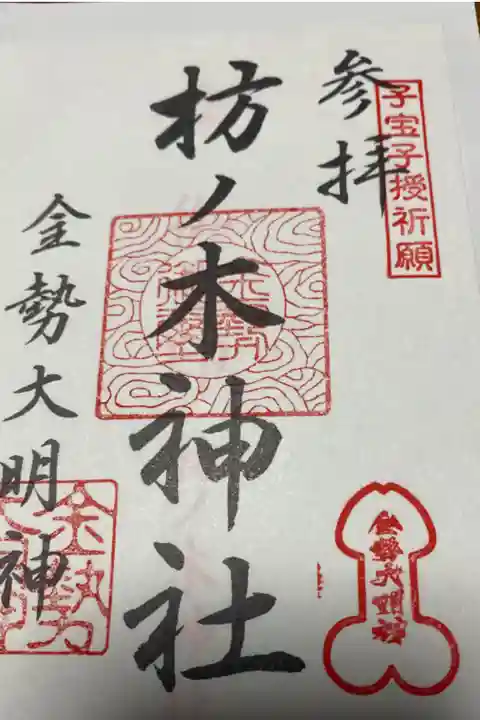 子宝子授祈願
参拝
枋ノ木神社
金勢大明神
金勢大明神